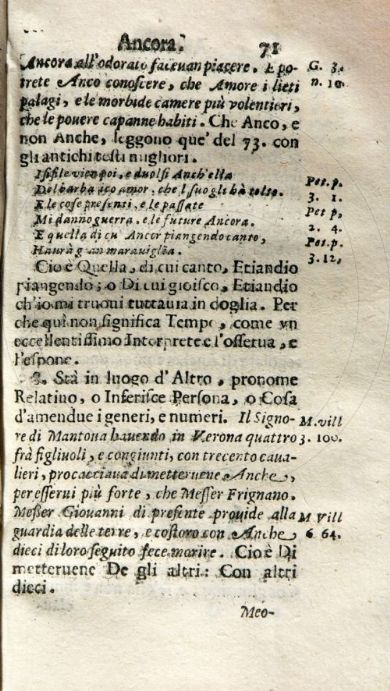 Ancora. 71
Ancora all'odorato faceuan piacere. E po- G. 3.
trete Anco conoscere, che Amore i lieti n. 10.
palagi, e le morbide camere più volentieri,
che le pouere capanne habiti. Che Anco, e
non Anche, leggono que' del 73. con
gli antichi testi migliori.
Isifile vien poi, e duolsi Anch'ella
Del barbarico amor, che 'l suo gli hà tolto. Pet. p.
E le cose presenti, e le passate 3. 1.
Mi danno guerra, e le future Ancora. Pet p,
E quella di cu' Ancor piangendo canto, 2. 4.
Haurà gran marauiglia. Pet. p.
Cio è Quella, di cui canto, Etiandio 3. 12,
piangendo; o Di cui gioisco, Etiandio
ch'io mi truoui tuttauia in doglia. Per
che qui non significa Tempo, come vn
eccellentissimo Interprete l'osserua, e
l'espone.
3. Stà in luogo d'Altro, pronome
Relatiuo, o Inferisce Persona, o Cosa
d'amendue i generi, e numeri. Il Signo- M. vill
re di Mantoua hauendo in Verona quattro 3. 100.
frà figliuoli, e congiunti, con trecento caua-
lieri, procacciaua di metteruene Anche,
per esserui più forte, che Messer Frignano.
Messer Giouanni di presente prouide alla M vill
guardia delle terre, e costoro con Anche 6 64.
dieci di loro seguito fece morire. Cio è Di
metteruene De gli altri: Con altri
dieci.
Meo-